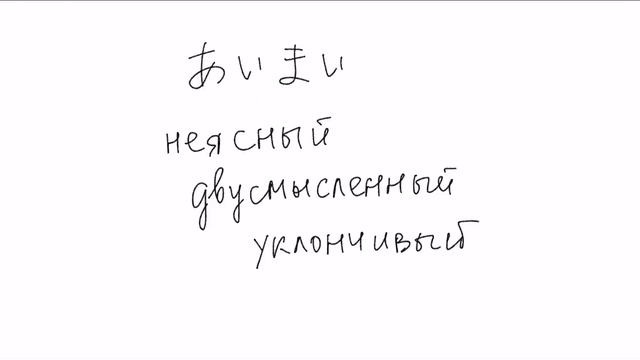 あいまい
неясный
двусмысленный
уклончивый